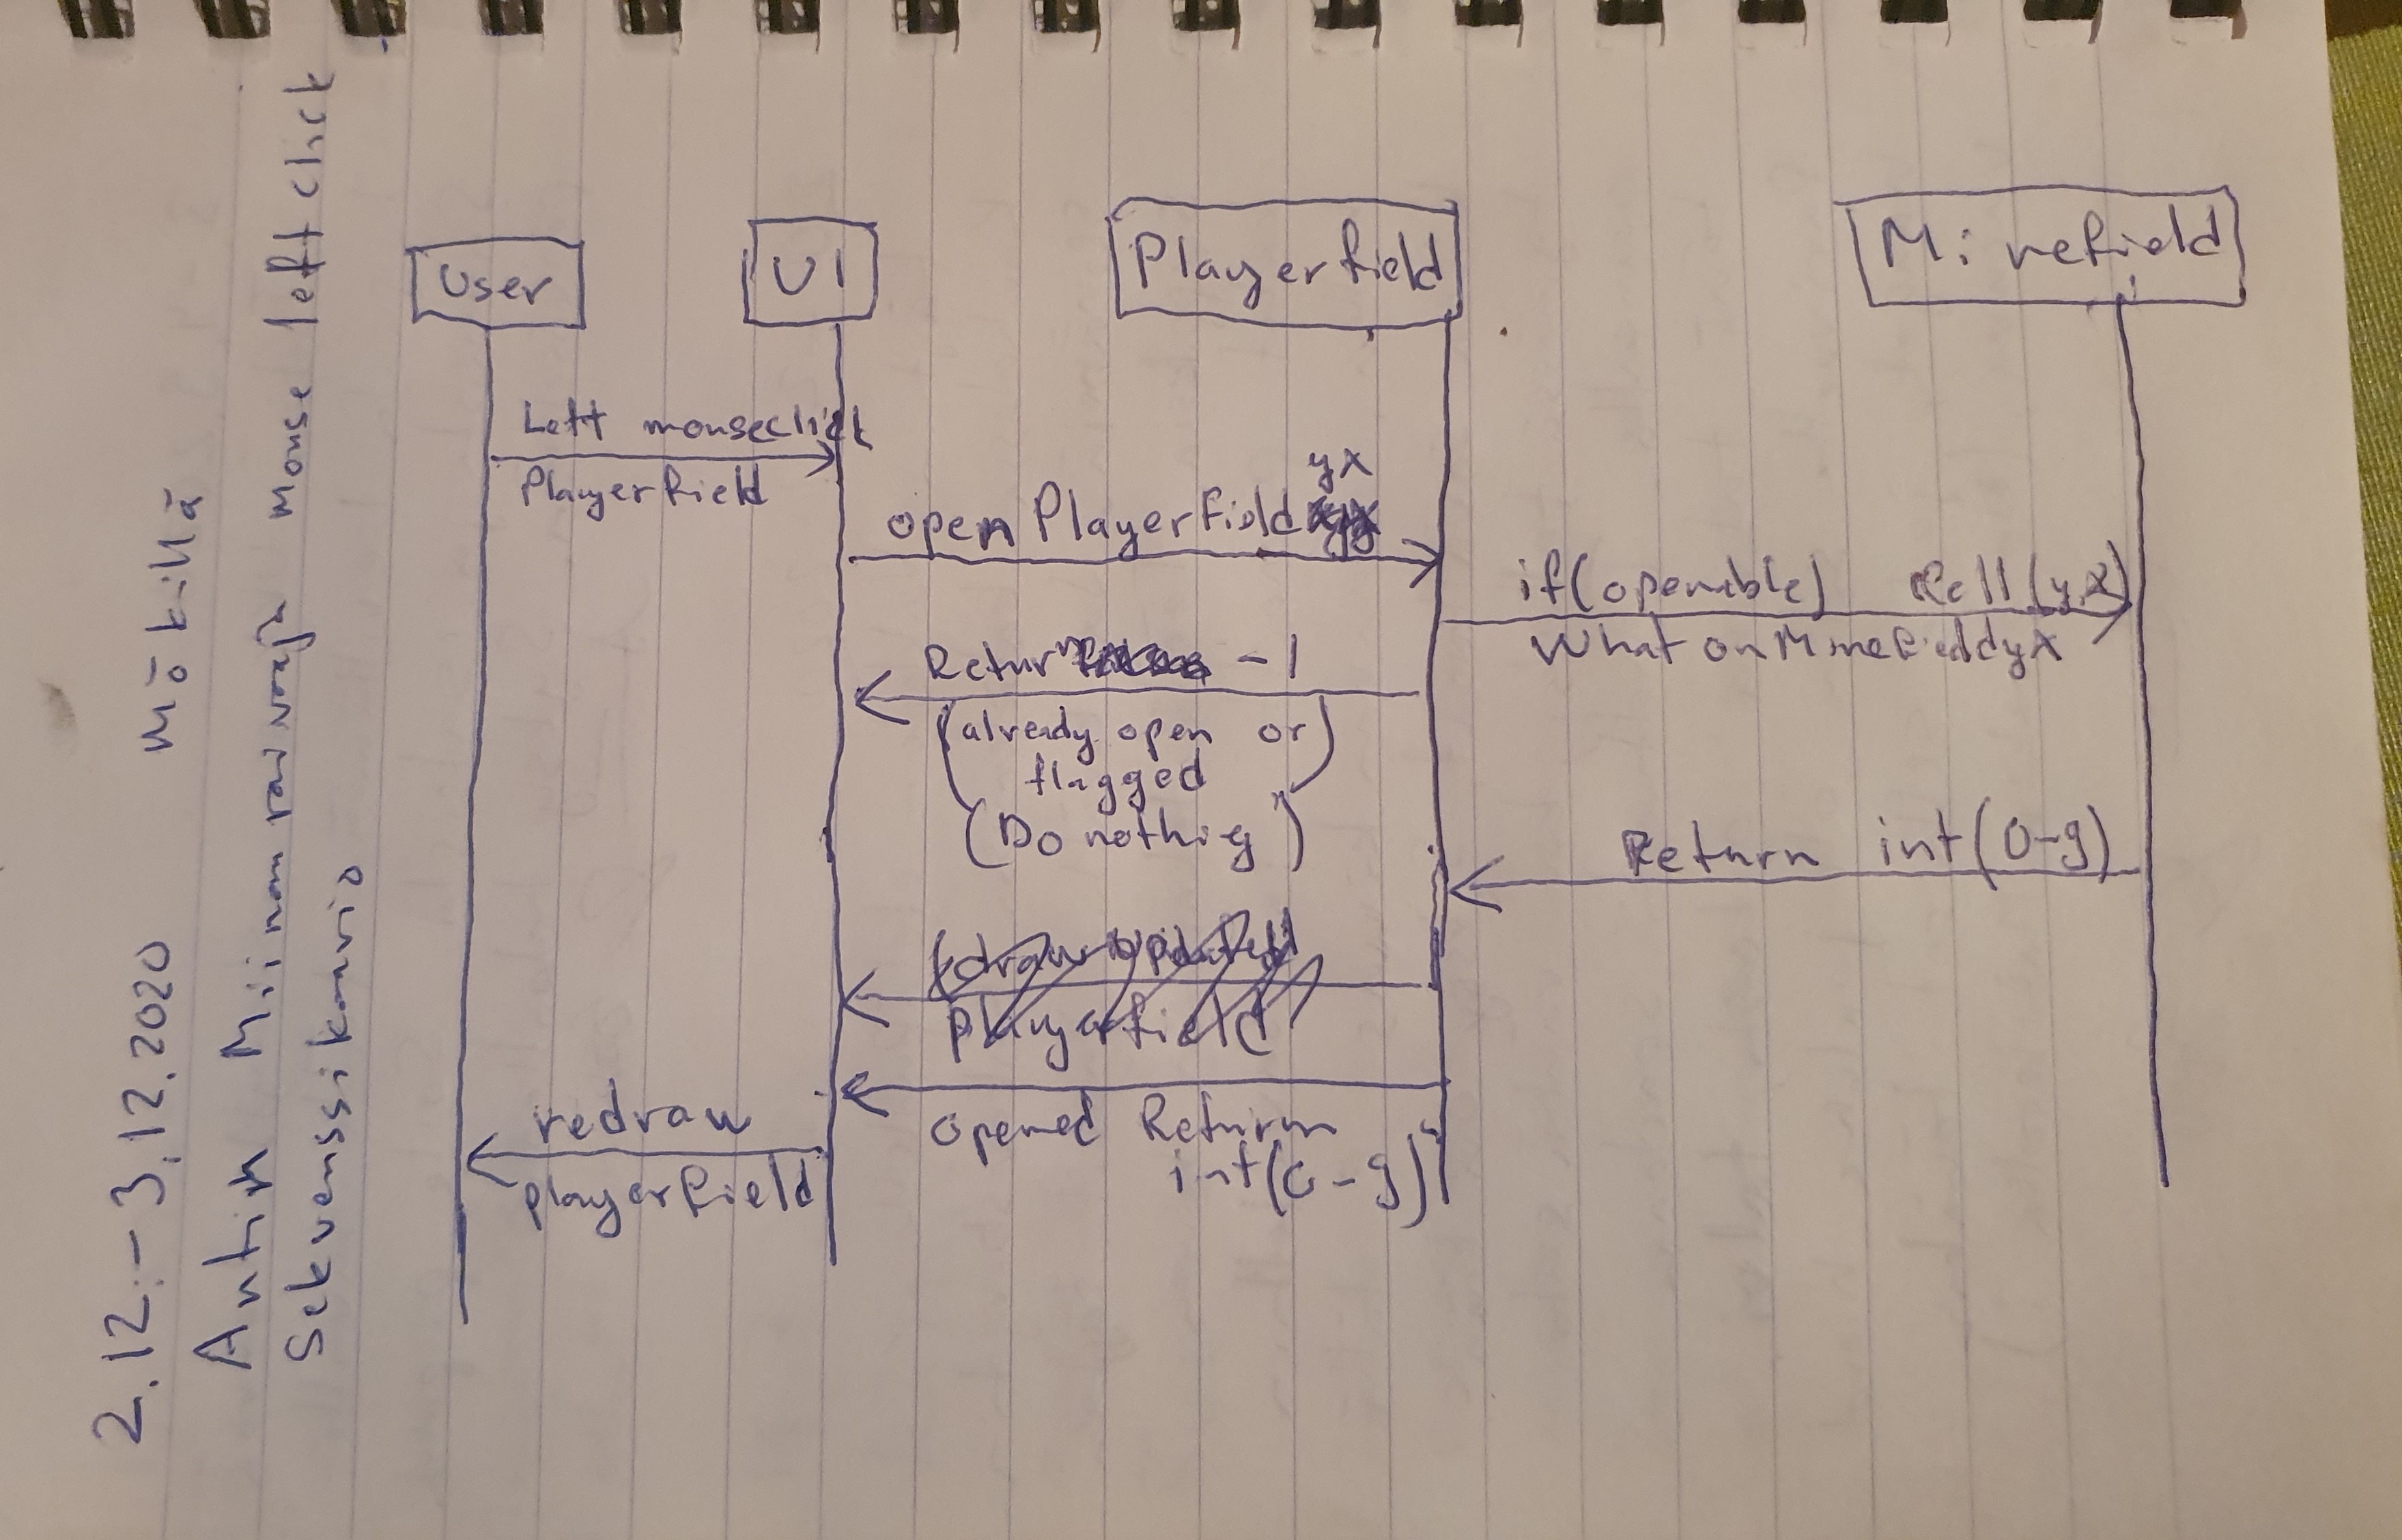 2.12.-3.12.2020 mökillä
Miinanraivaaja mouse left click
Sekvenssikaavio
User
UI
Playerfield
Minefield
Left mouseclick
Playerfield
yx
openPlayerfield
if(openable) (y,x)
What onMinefieldyx
Return -1
(already open or
flagged)
(Do nothing)
Return int(0-9)
playerfield
opened Return
int(0-9)
redraw
playerfield